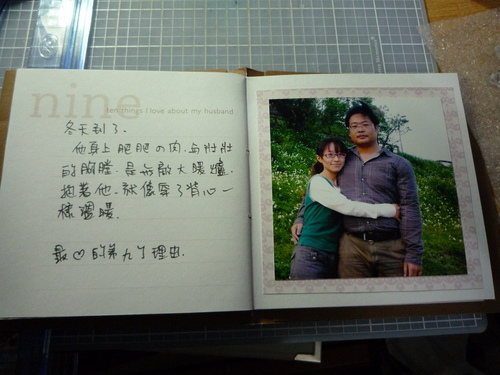 nine
ten things I love about my husband
冬天到了.
他身上肥肥の肉,与壯壯
的胸膛.是我的大暖爐.
抱著他.就像穿了背心一
樣溫暖.
最♡的第九个理由.